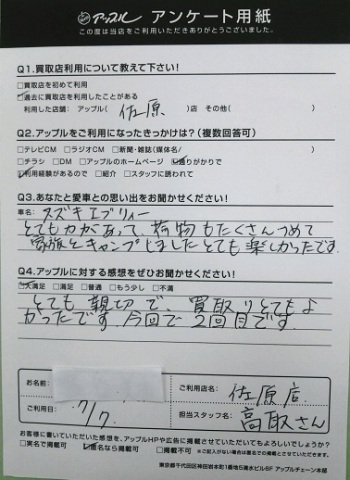 アップル アンケート用紙
この度は当店をご利用いただきありがとうございました。
Q1.買取店利用について教えて下さい!
□買取店を初めて利用
☑過去に買取店を利用したことがある
利用した店舗: アップル( 佐原 )店 その他( )
Q2.アップルをご利用になったきっかけは?(複数回答可)
□テレビCM □ラジオCM □新聞・雑誌(媒体名/ )
□チラシ □DM □アップルのホームページ ☑通りがかりで
☑利用経験があるので □紹介 □スタッフに誘われて
Q3.あなたと愛車との思い出をお聞かせください!
車名: スズキエブリィー
とても力があって、荷物もたくさんつめて
家族とキャンプしましたとても楽しかったです.
Q4.アップルに対する感想をぜひお聞かせください!
☑大満足 □満足 □普通 □もう少し □不満
とても親切で、買取りとてもよ
かったです 今回で2回目です
お名前:
ご利用日: 7/7
ご利用店名: 佐原店
担当スタッフ名: 高取さん
お客様に書いていただいた感想を、アップルHPや広告に掲載させていただいてもよろしいでしょうか?
□実名で掲載可 ☑匿名なら掲載可 □掲載不可 ※ご記入がない場合は匿名での掲載とさせていただきます。
東京都千代田区神田岩本町1番地5清水ビル6F アップルチェーン本部